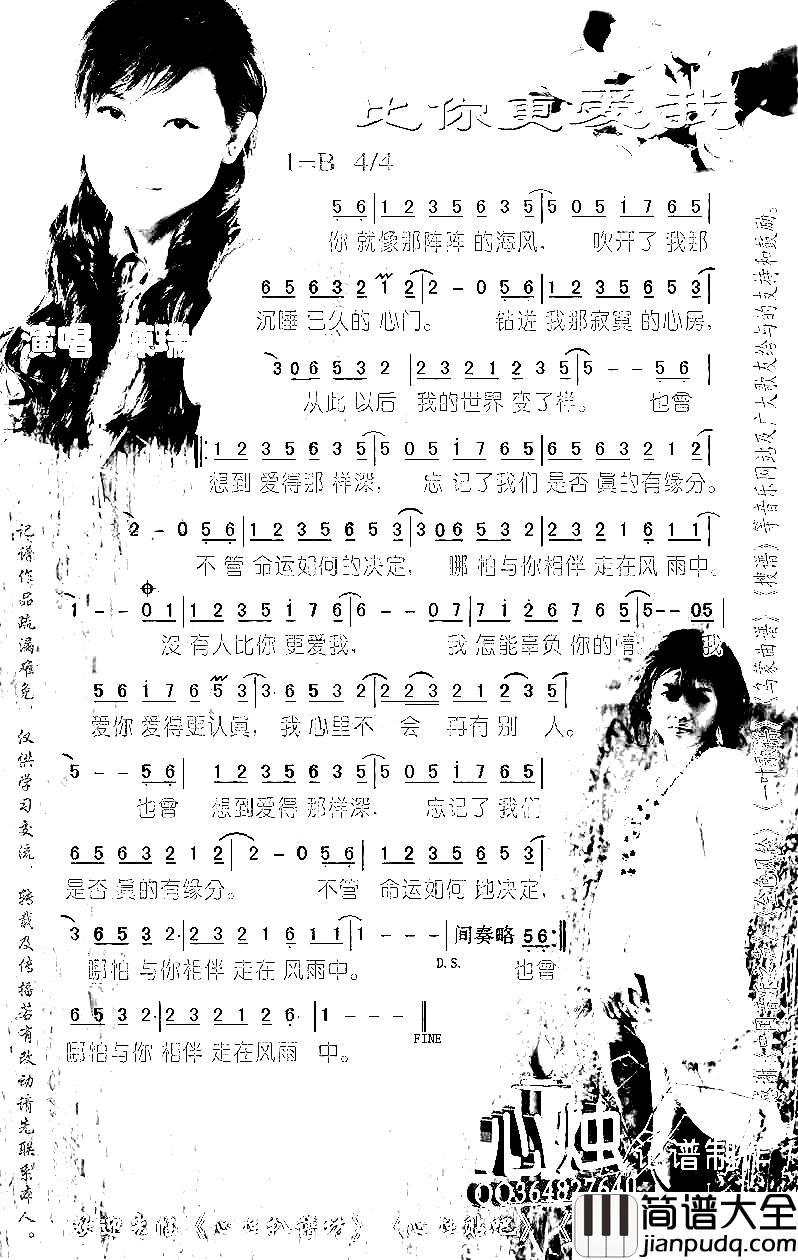 比你更爱我
1=B 4/4
演唱 陳瑞
5 6 | 1 2 3 5 6 3 5 | 5 0 5 i 7 6 5 |
你就像那阵阵的海风， 吹开了我那
6 5 6 3 2 1 2 | 2 - 0 5 6 | 1 2 3 5 6 5 3 |
沉睡三久的心门。 钻进我那寂寞的心房，
3 0 6 5 3 2 | 2 3 2 1 2 3 5 | 5 - - 5 6 |
从此以后 我的世界变了样。 也曾
1 2 3 5 6 3 5 | 5 0 5 i 7 6 5 | 6 5 6 3 2 1 2 |
想到爱得那样深， 忘记了我们是否真的有缘分。
2 - 0 5 6 | 1 2 3 5 6 5 3 | 3 0 6 5 3 2 | 2 3 2 1 6 1 1 |
不管命运如何的决定， 哪怕与你相伴走在风雨中。
1 - - 0 1 | 1 2 3 5 i 7 6 | 6 - - 0 7 | 7 i 2 6 7 6 5 | 5 - - 0 5 |
没有人比你更爱我， 我怎能辜负你的情 我
5 6 i 7 6 5 3 | 3 6 5 3 2 | 2 2 3 2 1 2 3 5 |
爱你爱得更认真， 我心里不会再有别人。
5 - 5 6 1 2 3 5 6 3 5 | 5 0 5 i 7 6 5 |
也曾 想到爱得那样深． 忘记了我们
6 5 6 3 2 1 2 | 2 - 0 5 6 | 1 2 3 5 6 5 3 |
是否真的有缘分。 不管命运如何地决定，
3 6 5 3 2· | 2 3 2 1 6 1 1 | 1 - - - | 间奏略 5 6 :‖
D.S.
哪怕与你相伴走在风雨中。 也曾
6 5 3 2· | 2 3 2 1 2 6· | 1 - - - ‖
FINE
哪怕与你相伴走在风雨中。
记谱作品疏漏难免，仅供学习交流，转载及传播若有改动请先联系本人。
《搜谱》等音乐网站及广大歌友给与的支持和鼓励。
心烛 记谱制作
QQ364827640
简谱大全
www.jianpudq.com